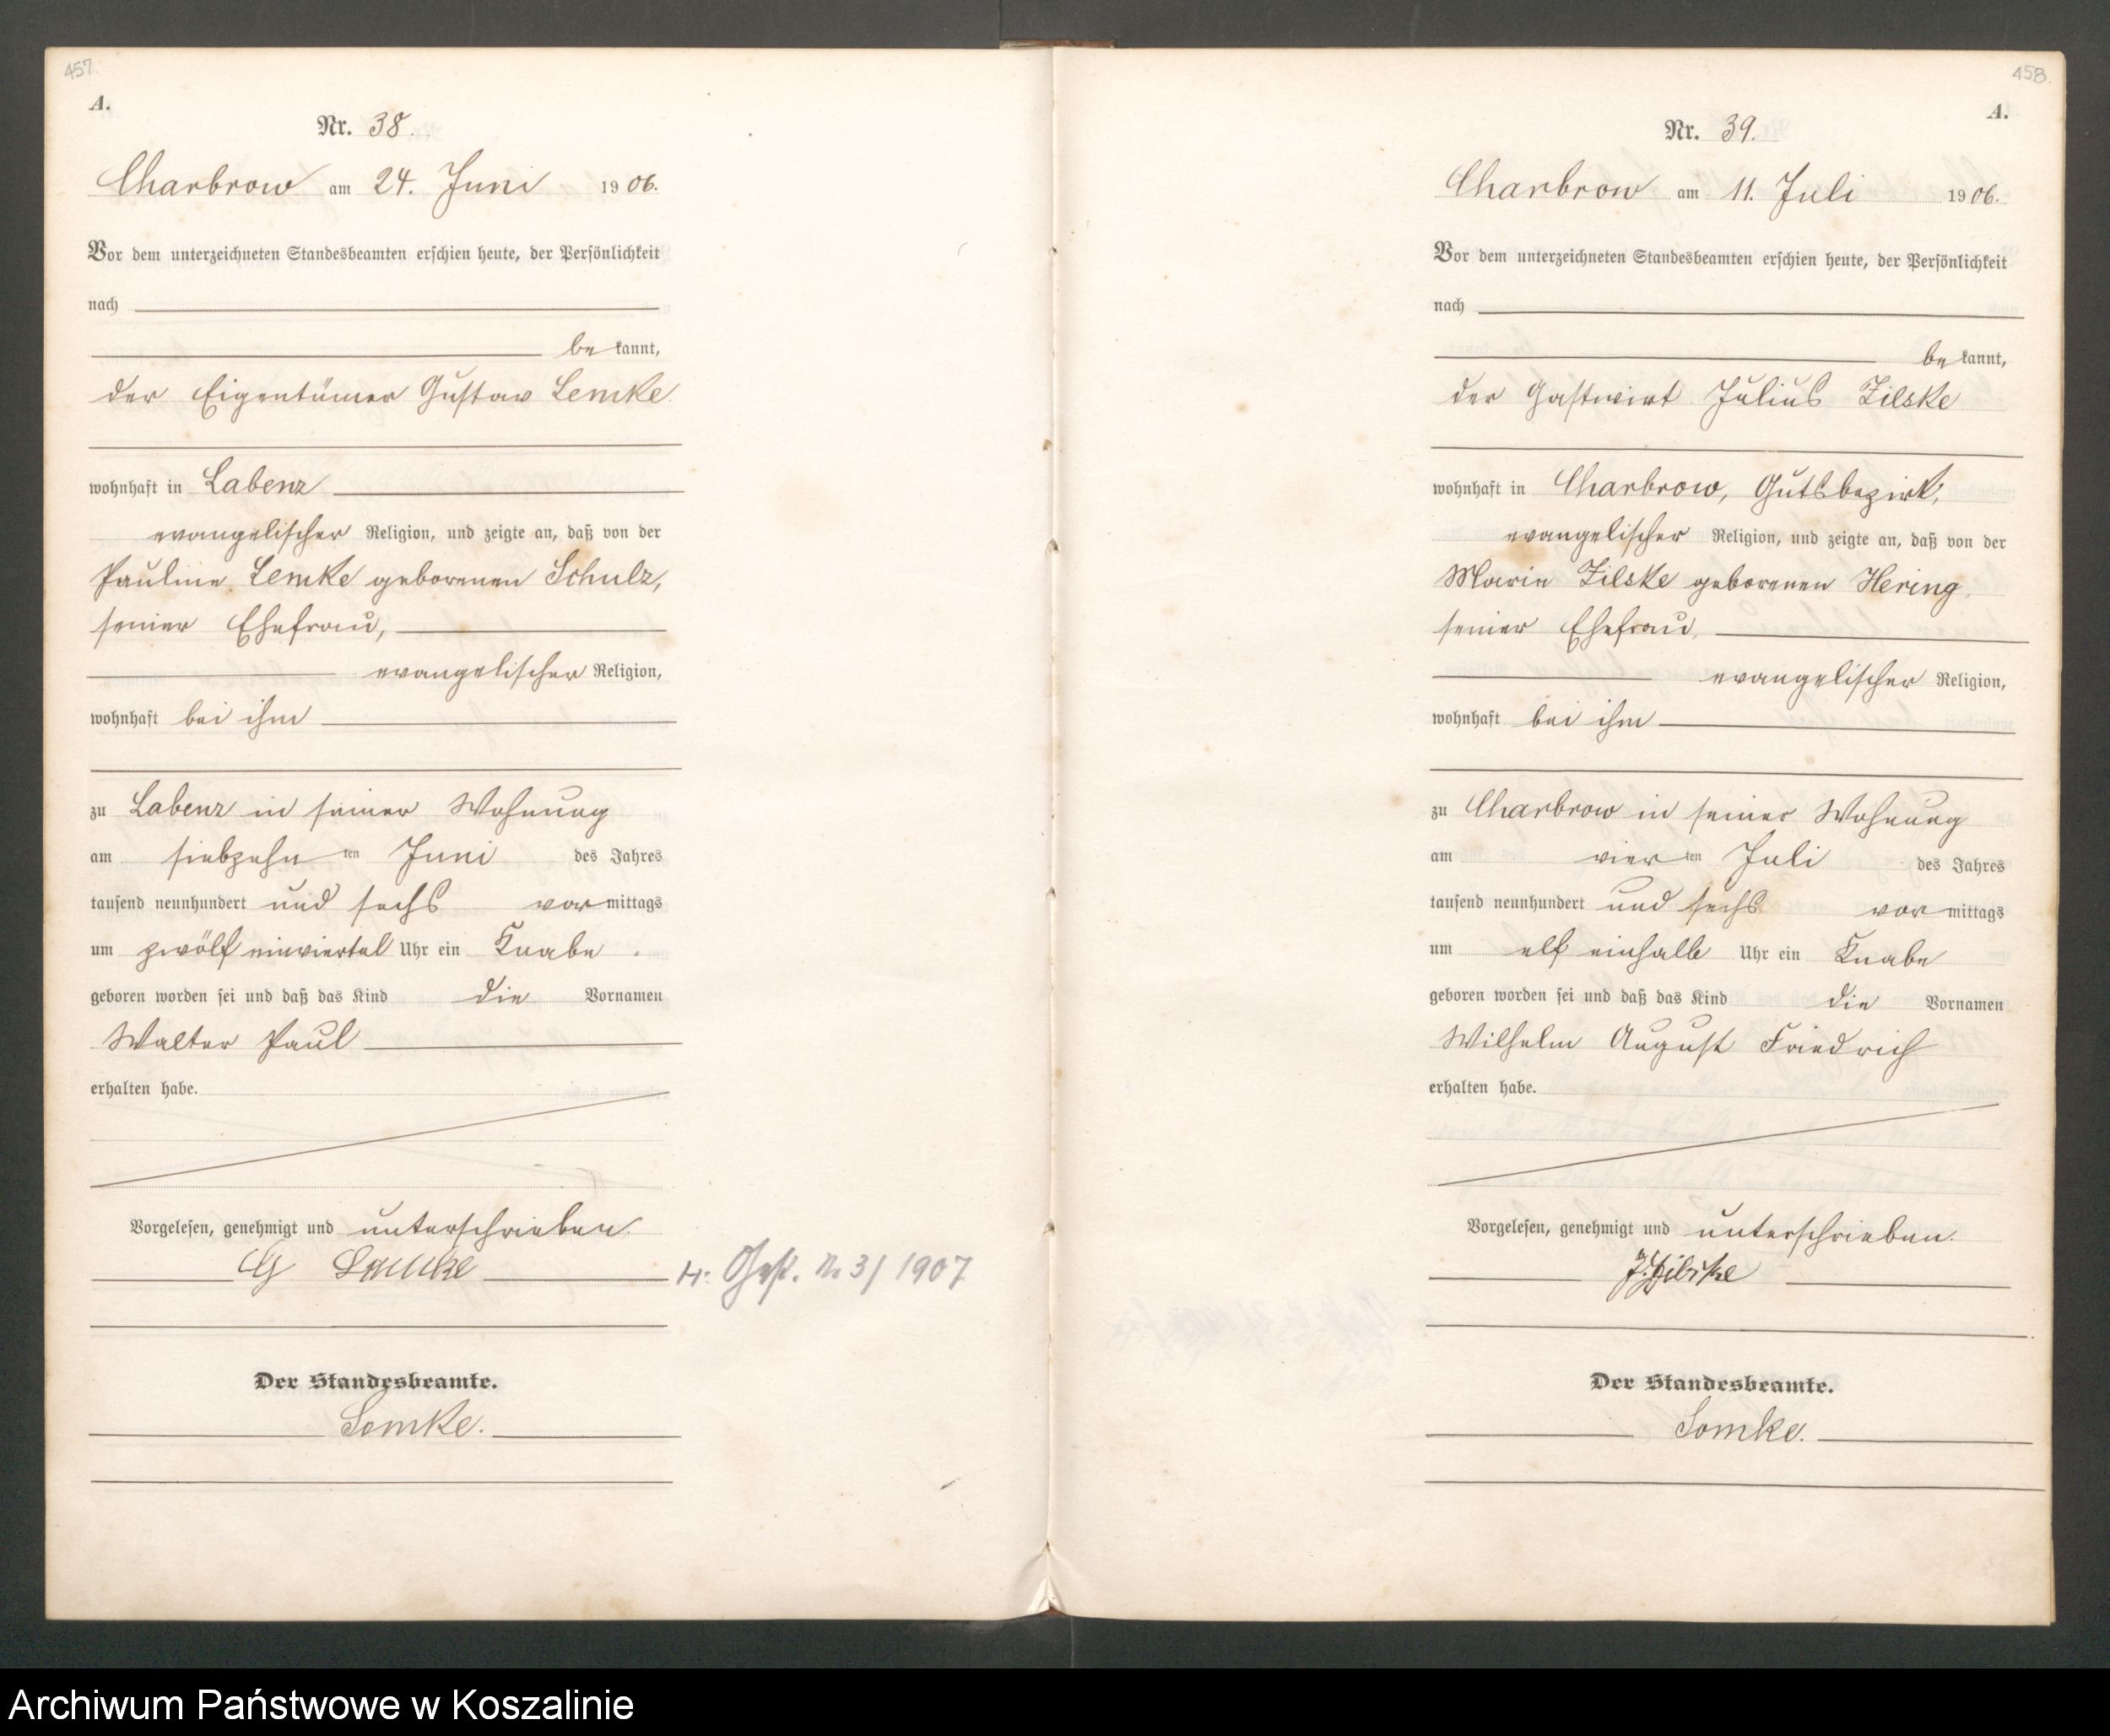 457.
A.
Nr. 38.
Charbrow am 24. Juni 1906.
Vor dem unterzeichneten Standesbeamten erschien heute, der Persönlichkeit
nach
be kannt,
der Eigentümer Gustav Lemke
wohnhaft in Labenz
evangelischer Religion, und zeigte an, daß von der
Pauline Lemke geborenen Schulz,
seiner Ehefrau,
evangelischer Religion,
wohnhaft bei ihm
zu Labenz in seiner Wohnung
am siebzehn ten Juni des Jahres
tausend neunhundert und sechs vor mittags
um zwölf einviertel Uhr ein Knabe
geboren worden sei und daß das Kind die Vornamen
Walter Paul
erhalten habe.
Vorgelesen, genehmigt und unterschrieben.
G Lemke
H. Gest. N 3/1907
Der Standesbeamte.
Lomke.
458.
A.
Nr. 39.
Charbrow am 11. Juli 1906.
Vor dem unterzeichneten Standesbeamten erschien heute, der Persönlichkeit
nach
be kannt,
der Gastwirt Julius Zilske
wohnhaft in Charbrow, Gutsbezirk,
evangelischer Religion, und zeigte an, daß von der
Marie Zilske geborenen Hering
seiner Ehefrau,
evangelischer Religion,
wohnhaft bei ihm
zu Charbrow in seiner Wohnung
am vier ten Juli des Jahres
tausend neunhundert und sechs vor mittags
um elf einhalb Uhr ein Knabe
geboren worden sei und daß das Kind die Vornamen
Wilhelm August Friedrich
erhalten habe.
Vorgelesen, genehmigt und unterschrieben.
J. Zilske
Der Standesbeamte.
Lomke.
Archiwum Państwowe w Koszalinie